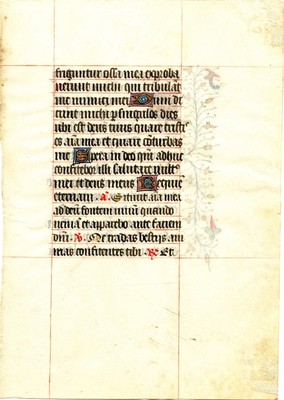 friguntur ossa mea exproba
uerunt michi qui tribulāt
me inimici mei Dum di
cunt michi ꝑ singulos dies
ubi est deus tuus quare tristꝭ
es aīa mea et quare cōturbas
me Spera in deo qm̄ adhuc
confitebor illi salutare uultꝰ
mei et deus meus Requiē
eternam. a. Sitiuit aīa mea
ad deū fontem uiuū quando
ueniā et apparebo ante faciem
dnī. ℣. Ne tradas bestijs ani
mas confitentes tibi. ℟. Et